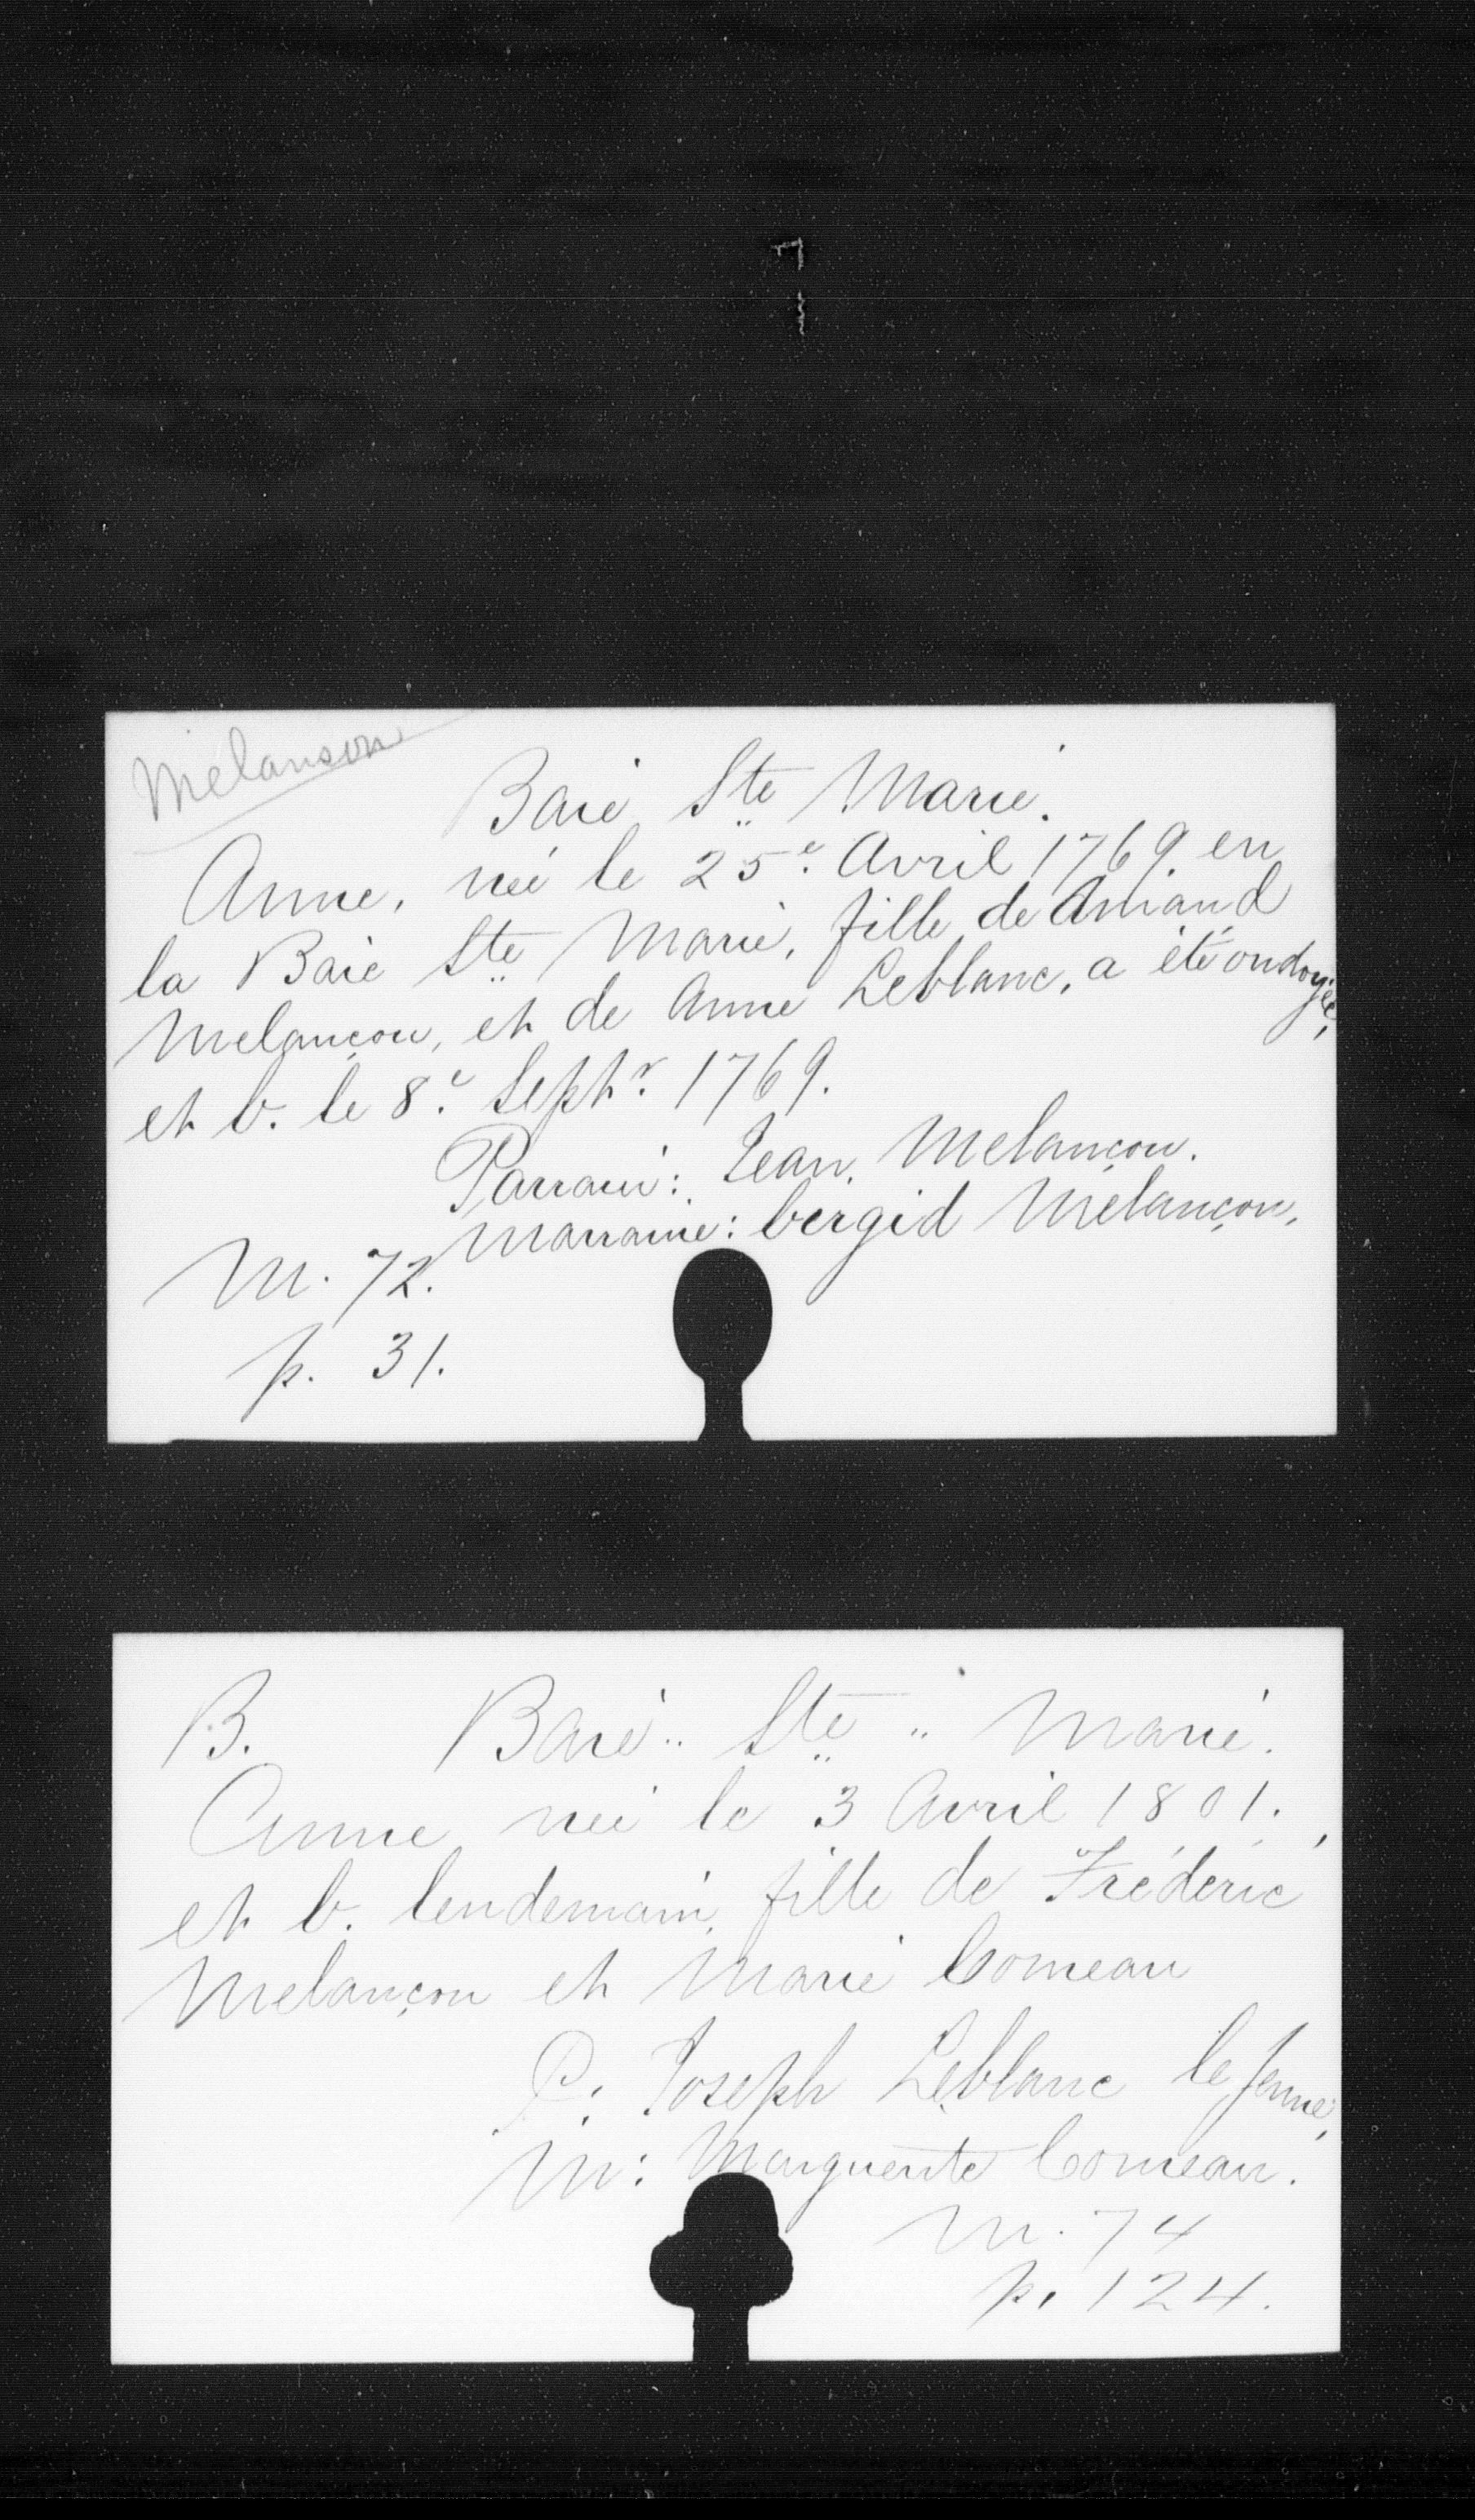 Mélanson
Baie Ste Marie.
Anne, née le 25e Avril 1769. en
la Baie Ste Marie, fille de Amand
Melançon, et de Anne Leblanc, a été ondoyée,
et b. le 8e Septr 1769.
Parrain: Jean Melançon.
Marraine: bergid Mélançon.
M. 72.
p. 31.
B. Baie Ste Marie.
Anne née le 3 Avril 1801.,
et b. lendemain, fille de Fréderic
Melançon et Marie Comeau
P. Joseph Leblanc le Jeune,
M: Marguerite Comeau.
M. 74
p. 124.